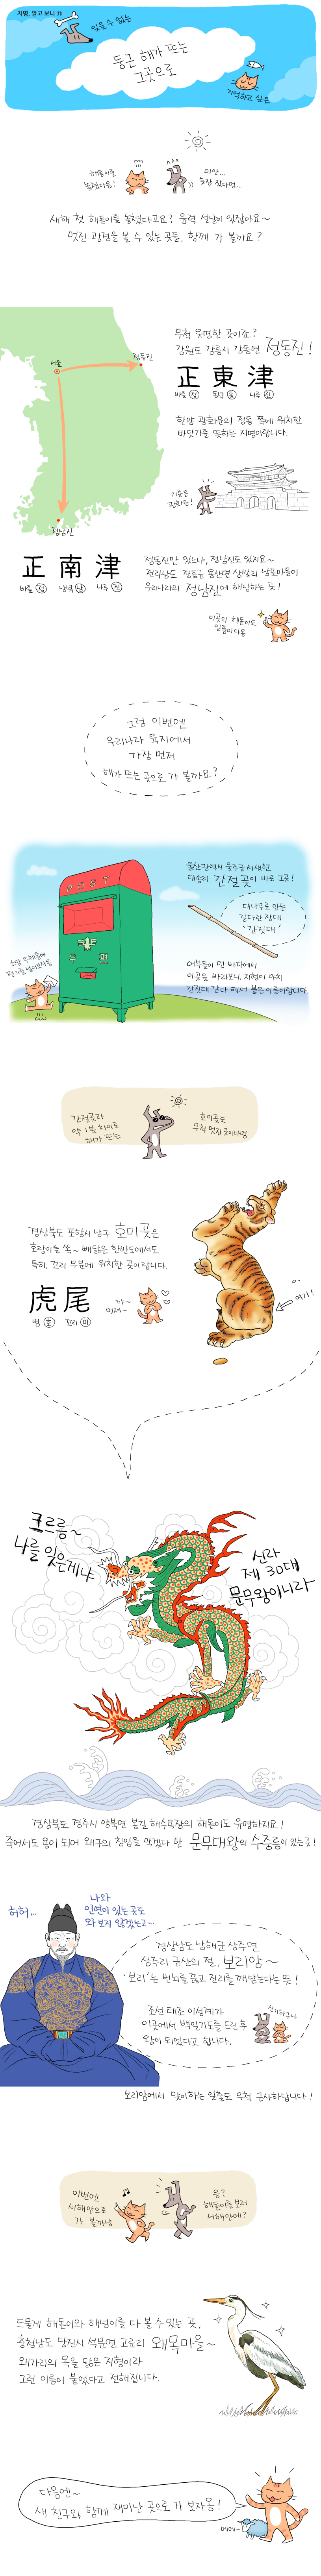 지명, 알고 보니 ⑪
잊을 수 없는
둥근 해가 뜨는
그곳으로
기억하고 싶은
해돋이를
놓쳤다옹!
미안...
늦잠 잤다멍...
새해 첫 해돋이를 놓쳤다고요? 음력 설날이 있잖아요~
멋진 광경을 볼 수 있는 곳들, 함께 가 볼까요?
서울
정동진
정남진
무척 유명한 곳이죠?
강원도 강릉시 강동면 정동진!
正 東 津
바를 정 동녘 동 나루 진
한양 광화문의 정동 쪽에 위치한
바닷가를 뜻하는 지명이랍니다.
광화문!
正 南 津
바를 정 남녘 남 나루 진
정동진만 있느냐, 정남진도 있지요~
우리나라의 정남진에 해당하는 곳!
이곳의 해돋이도
일품이다옹
그럼 이번엔
우리나라 육지에서
가장 먼저
해가 뜨는 곳으로 가 볼까요?
울산광역시 울주군 서생면
대송리 간절곶이 바로 그곳!
대나무로 만든
긴다란 장대
'간짓대'
소망 우체통에
편지를 넣어보자옹
우 편
어부들이 먼 바다에서
이곳을 바라보니, 지형이 마치
간짓대 같다 해서 붙은 이름이랍니다.
간절곶과
약 1분 차이로
해가 뜨는
호미곶도
무척 멋진 곳이다멍
경상북도 포항시 남구 호미곶은
호랑이를 쏙~ 빼닮은 한반도에서도
특히, 꼬리 부분에 위치한 곳이랍니다.
여기!
虎 尾
범 호 꼬리 미
꺄~
멋져~
크르릉~
나를 잊은게냐
신라
제 30대
문무왕이니라
경상북도 경주시 양북면 봉길 해수욕장의 해돋이도 유명하지요!
죽어서도 용이 되어 왜구의 침입을 막겠다 한 문무대왕의 수중릉이 있는 곳!
허허...
나와
인연이 있는 곳도
와 보지 않겠는고...
경상남도 남해군 상주면
상주리 금산의 절, 보리암~
'보리'는 번뇌를 끊고 진리를 깨닫는다는 뜻!
조선 태조 이성계가
이곳에서 백일기도를 드린 후
왕이 되었다고 합니다.
보리암에서 맞이하는 일출도 무척 근사하답니다!
이번엔
서해안으로
가 볼까냥
응?
해돋이를 보러
서해안에?
드물게 해돋이와 해넘이를 다 볼 수 있는 곳,
충청남도 당진시 석문면 교로리 왜목마을~
왜가리의 목을 닮은 지형이라
그런 이름이 붙었다고 전해집니다.
다음엔~
새 친구와 함께 재미난 곳으로 가 보자옹!
메에~